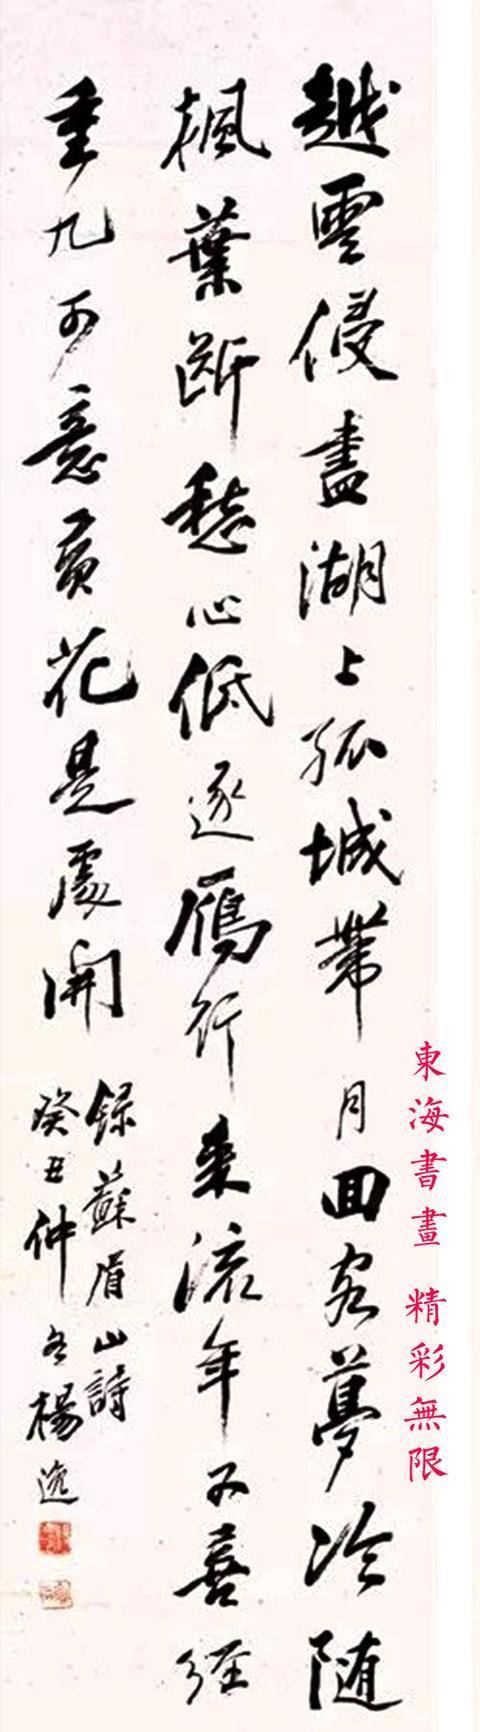 越雲侵盡湖上孤城帶月回客夢冷隨
楓葉斷愁心低逐鴈行來流年不喜經
重九可意黃花是處開
錄蘇眉山詩
癸丑仲冬楊逸
東海書畫 精彩無限